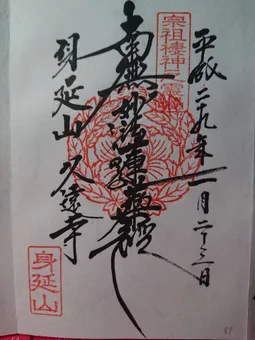 平成二九年一月二十三日
宗祖棲神
南無妙法蓮華經
身延山 久遠寺
身延山